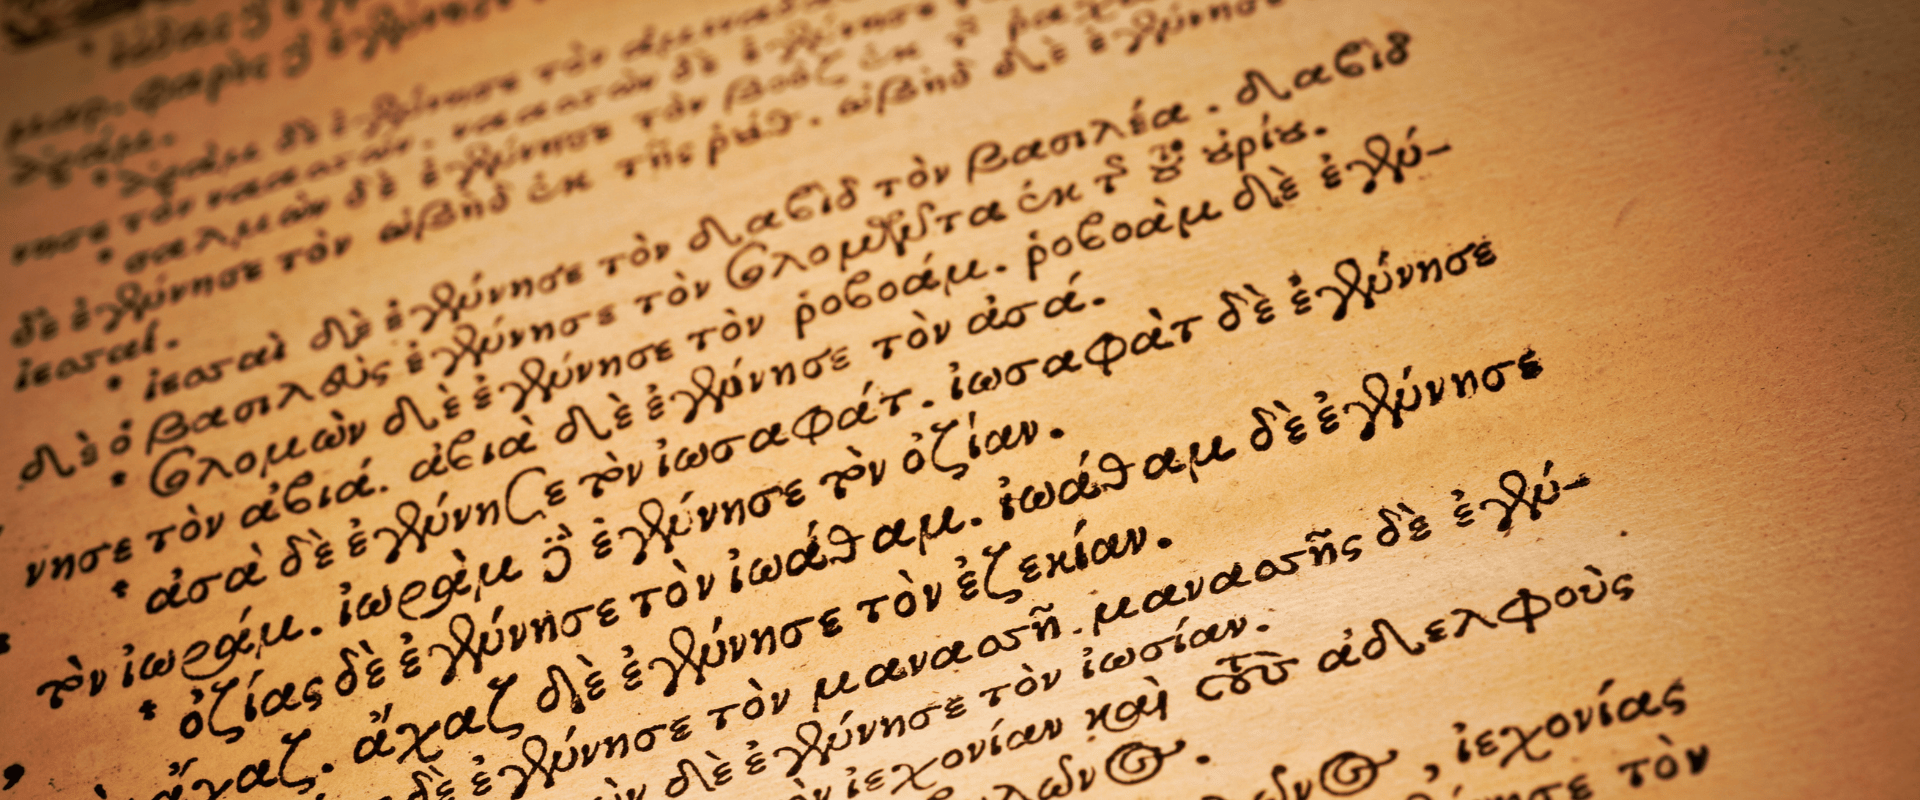 ἀράμ.
* ἀρὰμ δὲ ἐγέννησε τὸν
νησε τὸν ναασσών. ναασσὼν δὲ ἐγέννησε
* σαλμὼν δὲ ἐγέννησε τὸν βοὸζ ἐκ
δὲ ἐγέννησε τὸν ὠβὴδ ἐκ τῆς ῥούθ. ὠβὴδ δὲ ἐγέννησε
ἰεσσαί.
* ἰεσσαὶ δὲ ἐγέννησε τὸν δαβὶδ τὸν βασιλέα. δαβὶδ
δὲ ὁ βασιλεὺς ἐγέννησε τὸν σολομῶντα ἐκ τ τοῦ οὐρίου.
* σολομὼν δὲ ἐγέννησε τὸν ῥοβοάμ. ῥοβοὰμ δὲ ἐγέν-
νησε τὸν ἀβιά. ἀβιὰ δὲ ἐγέννησε τὸν ἀσά.
* ἀσὰ δὲ ἐγέννησε τὸν ἰωσαφάτ. ἰωσαφὰτ δὲ ἐγέννησε
τὸν ἰωράμ. ἰωρὰμ δὲ ἐγέννησε τὸν ὀζίαν.
* ὀζίας δὲ ἐγέννησε τὸν ἰωάθαμ. ἰωάθαμ δὲ ἐγέννησε
ἄχαζ. ἄχαζ δὲ ἐγέννησε τὸν ἐζεκίαν.
δὲ ἐγέννησε τὸν μανασσῆ. μανασσῆς δὲ ἐγέν-
δὲ ἐγέννησε τὸν ἰωσίαν.
ἰεχονίαν καὶ τοὺς ἀδελφοὺς
ἰεχονίας
τὸν